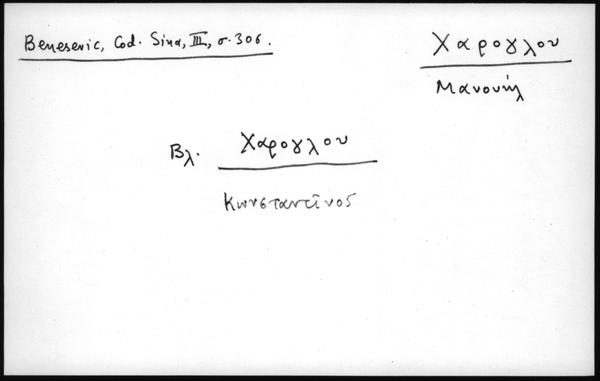 Benesevic, Cod. Sina, III, σ. 306.
Χαρογλου
Μανουήλ
Βλ. Χαρογλου
Κωνσταντῖνος